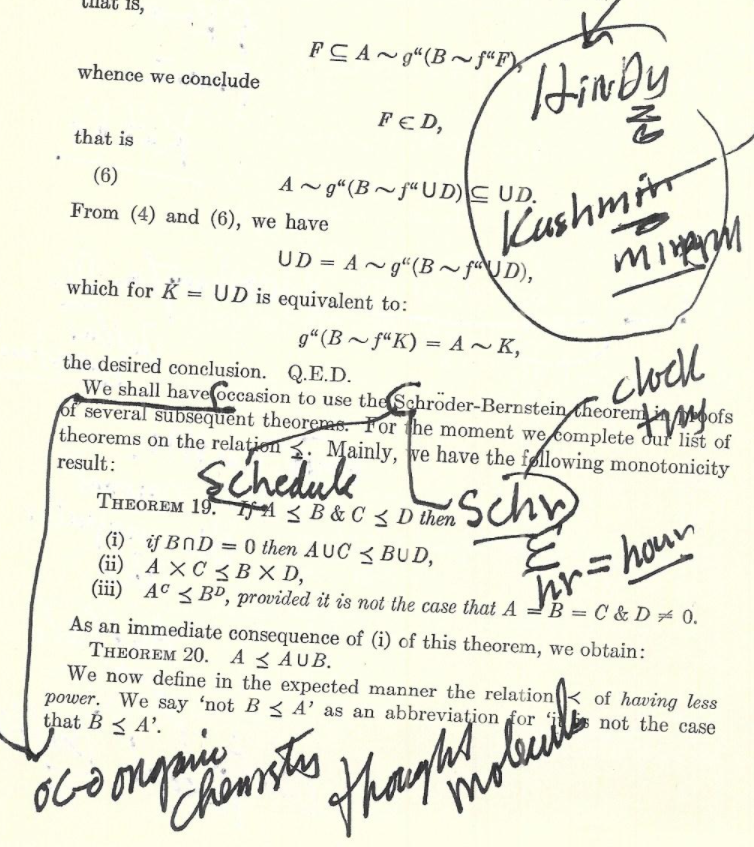 that is,
F ⊆ A ∼ g“(B ∼ f“F),
whence we conclude
F ∈ D,
that is
(6) A ∼ g“(B ∼ f“∪D) ⊆ ∪D.
From (4) and (6), we have
∪D = A ∼ g“(B ∼ f“∪D),
which for K = ∪D is equivalent to:
g“(B ∼ f“K) = A ∼ K,
the desired conclusion. Q.E.D.
We shall have occasion to use the Schröder-Bernstein theorem in proofs
of several subsequent theorems. For the moment we complete our list of
theorems on the relation ≼. Mainly, we have the following monotonicity
result:
THEOREM 19. If A ≼ B & C ≼ D then
(i) if B∩D = 0 then A∪C ≼ B∪D,
(ii) A × C ≼ B × D,
(iii) Aᶜ ≼ Bᴰ, provided it is not the case that A = B = C & D ≠ 0.
As an immediate consequence of (i) of this theorem, we obtain:
THEOREM 20. A ≼ A∪B.
We now define in the expected manner the relation ≺ of having less
power. We say ‘not B ≼ A’ as an abbreviation for ‘it is not the case
that B ≼ A’.
HinDu
Kushmir
clock
Schedule
Schr
hr = hour
organic
chemistry
thought
molecule